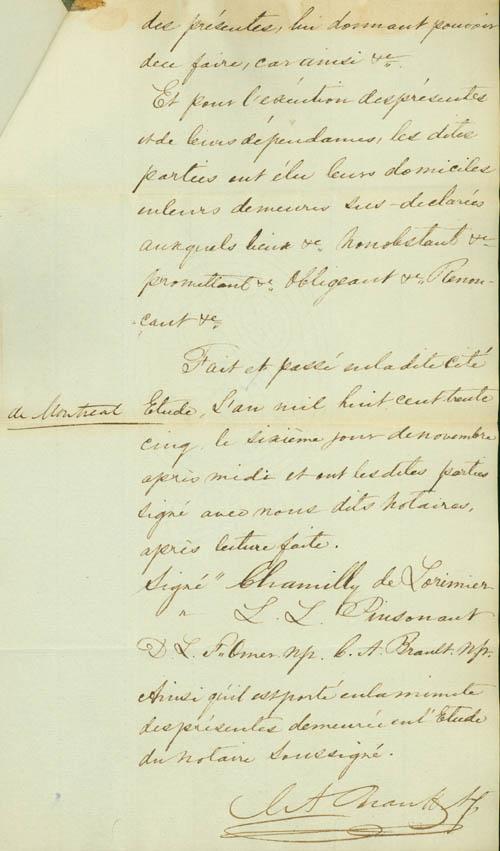 des présentes, lui donnant pouvoir
de ce faire, car ainsi &c.
Et pour l'exécution des présentes
et de leurs dépendances, les dites
parties ont élu leurs domiciles
en leurs demeures sus-déclarées
auxquels lieux &c. Nonobstant &c
promettant &c. Obligeant &c. Renon-
çant &c.
Fait et passé en la dite cité
de Montreal Etude, L'an mil huit cent trente
cinq, le sixième jour de novembre
après midi et ont les dites parties
signé avec nous dits notaires,
après lecture faite.
Signé " Chamilly de Lorimier
" L. L. Pinsonaut
D. E. np. C. A. Brault. np.
Ainsi qu'il est porté en la minute
des présentes demeurée en l'Etude
du notaire soussigné.
C A Brault NP